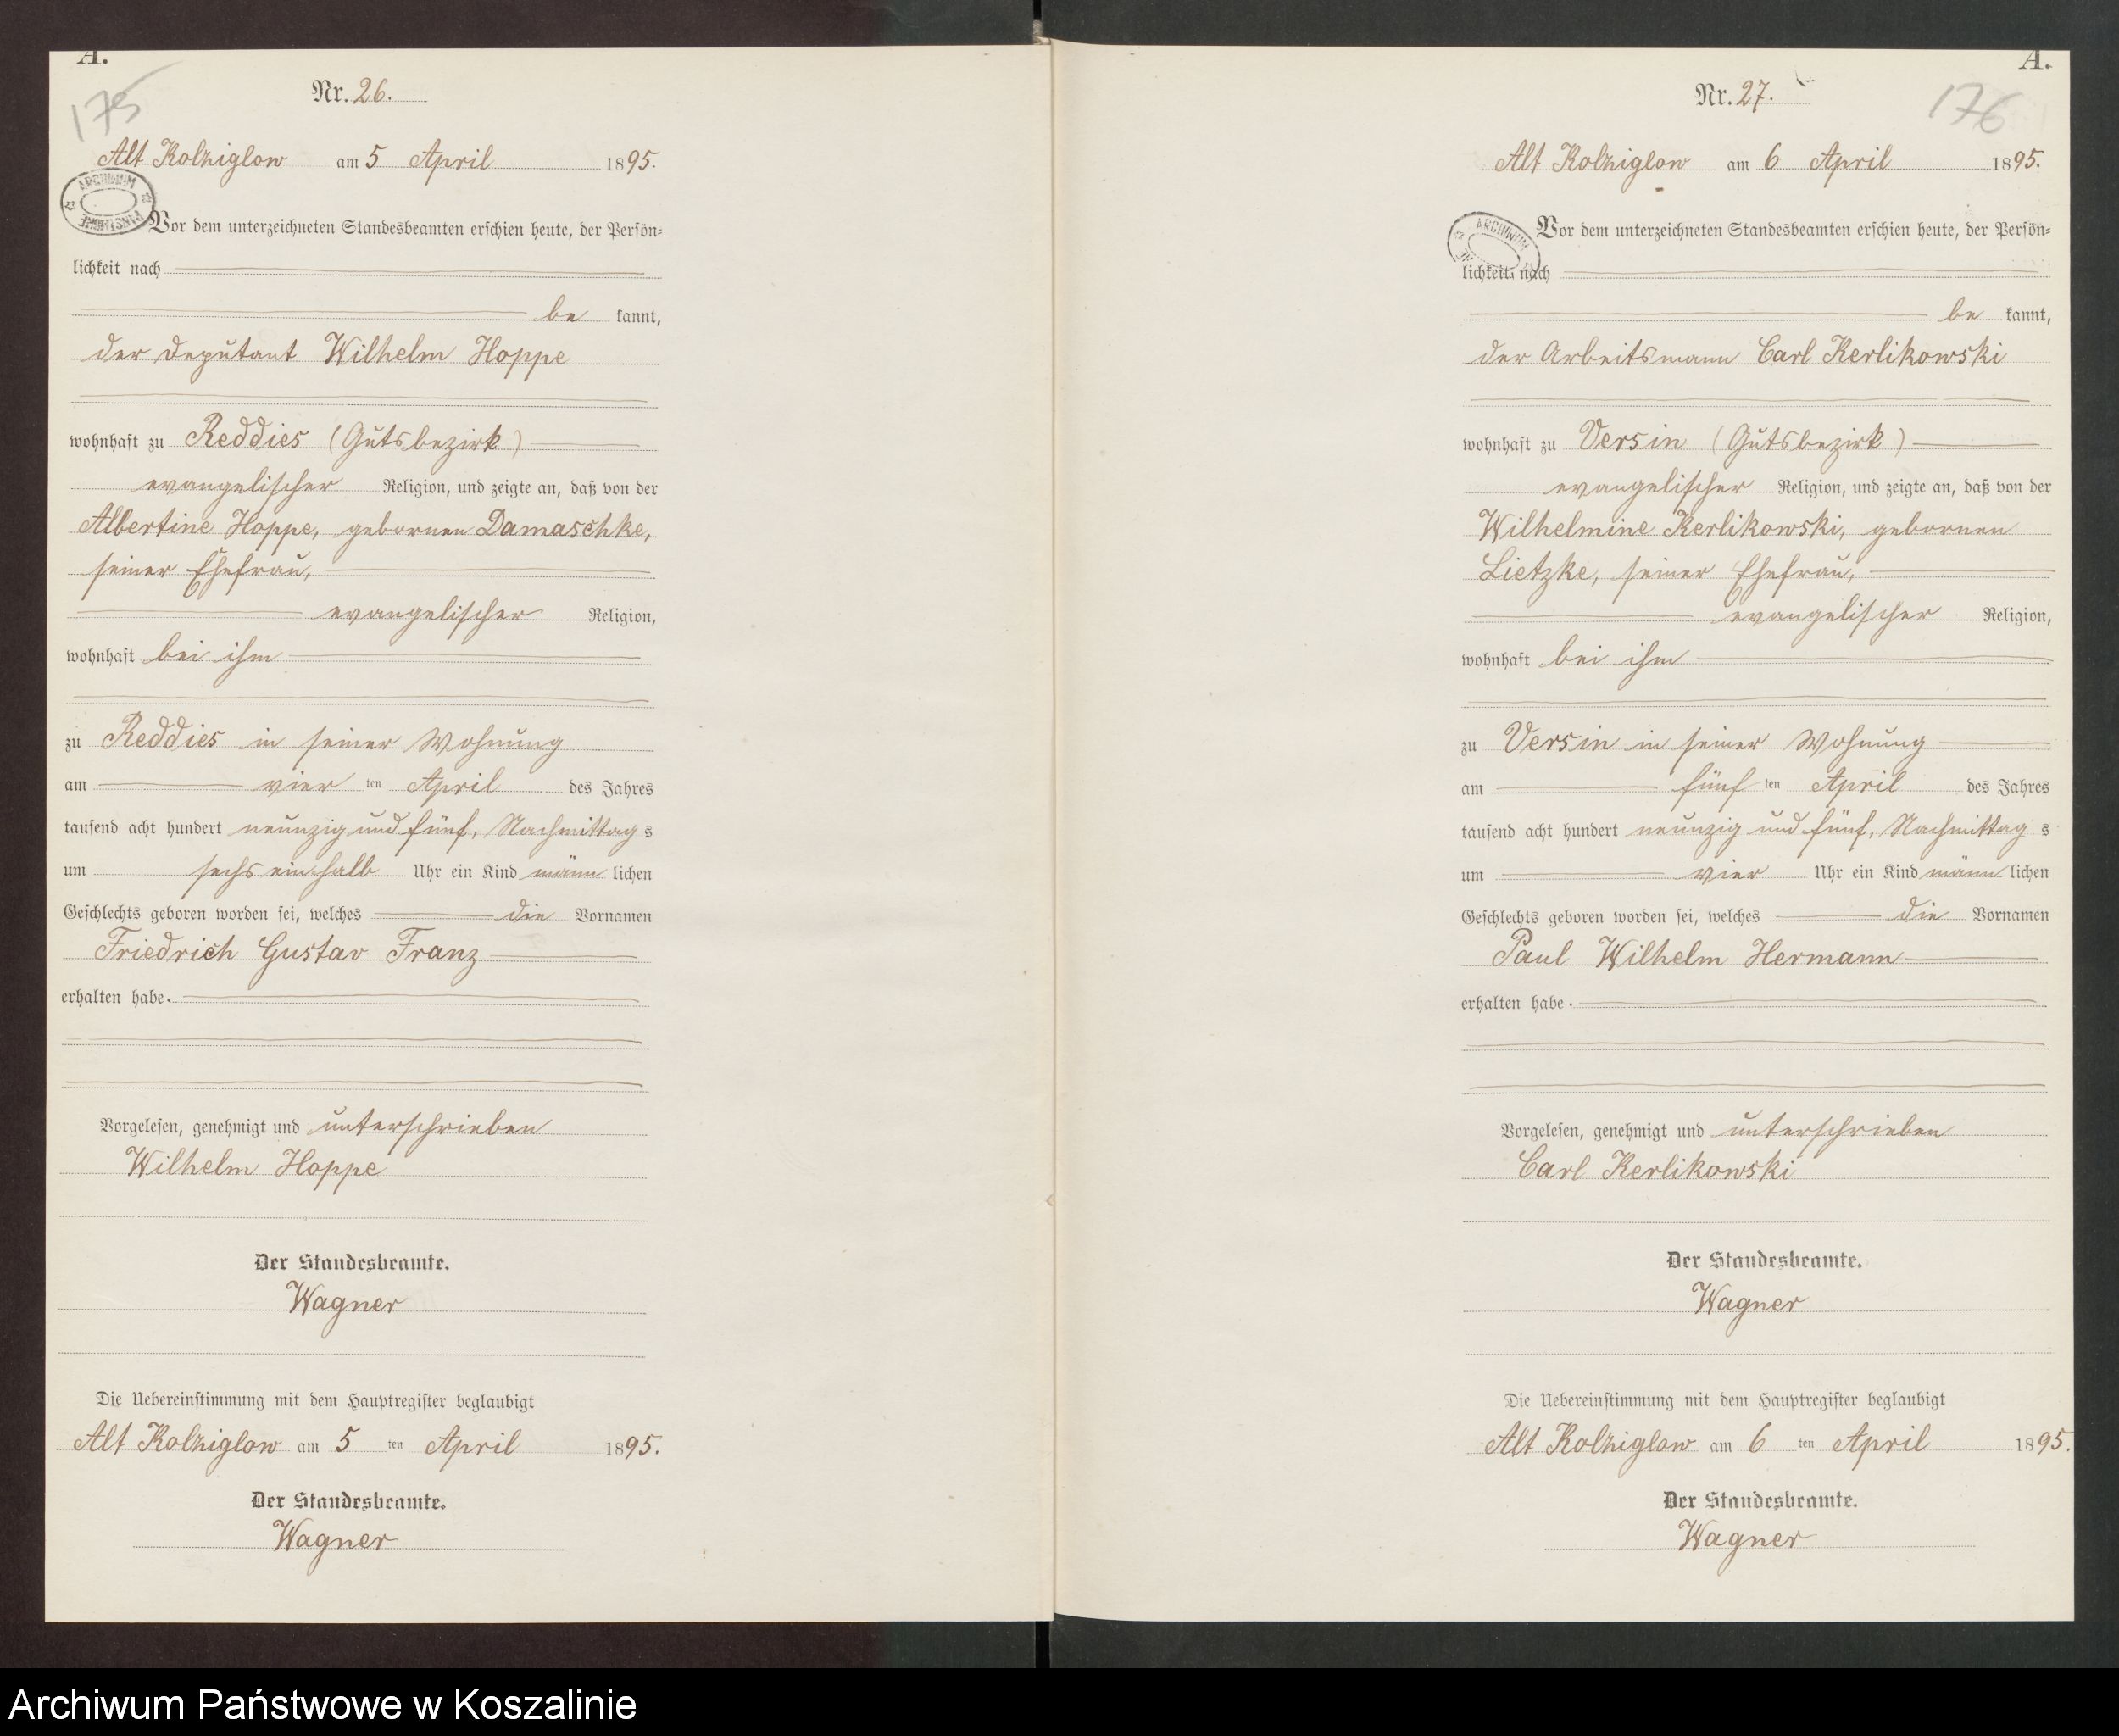 A.
175
Nr. 26.
Alt Kolziglow am 5 April 1895.
ARCHIWUM PAŃSTWOWE
Vor dem unterzeichneten Standesbeamten erschien heute, der Persön-
lichkeit nach
be kannt,
der Deputant Wilhelm Hoppe
wohnhaft zu Reddies (Gutsbezirk)
evangelischer Religion, und zeigte an, daß von der
Albertine Hoppe, gebornen Damaschke,
seiner Ehefrau,
evangelischer Religion,
wohnhaft bei ihm
zu Reddies in seiner Wohnung
am vier ten April des Jahres
tausend acht hundert neunzig und fünf, Nachmittag s
um sechs einhalb Uhr ein Kind männ lichen
Geschlechts geboren worden sei, welches die Vornamen
Friedrich Gustav Franz
erhalten habe.
Vorgelesen, genehmigt und unterschrieben
Wilhelm Hoppe
Der Standesbeamte.
Wagner
Die Uebereinstimmung mit dem Hauptregister beglaubigt
Alt Kolziglow am 5 ten April 1895.
Der Standesbeamte.
Wagner
A.
176
Nr. 27.
Alt Kolziglow am 6 April 1895.
ARCHIWUM
Vor dem unterzeichneten Standesbeamten erschien heute, der Persön-
lichkeit nach
be kannt,
der Arbeitsmann Carl Kerlikowski
wohnhaft zu Versin (Gutsbezirk)
evangelischer Religion, und zeigte an, daß von der
Wilhelmine Kerlikowski, gebornen
Lietzke, seiner Ehefrau,
evangelischer Religion,
wohnhaft bei ihm
zu Versin in seiner Wohnung
am fünf ten April des Jahres
tausend acht hundert neunzig und fünf, Nachmittag s
um vier Uhr ein Kind männ lichen
Geschlechts geboren worden sei, welches die Vornamen
Paul Wilhelm Hermann
erhalten habe.
Vorgelesen, genehmigt und unterschrieben
Carl Kerlikowski
Der Standesbeamte.
Wagner
Die Uebereinstimmung mit dem Hauptregister beglaubigt
Alt Kolziglow am 6 ten April 1895.
Der Standesbeamte.
Wagner
Archiwum Państwowe w Koszalinie